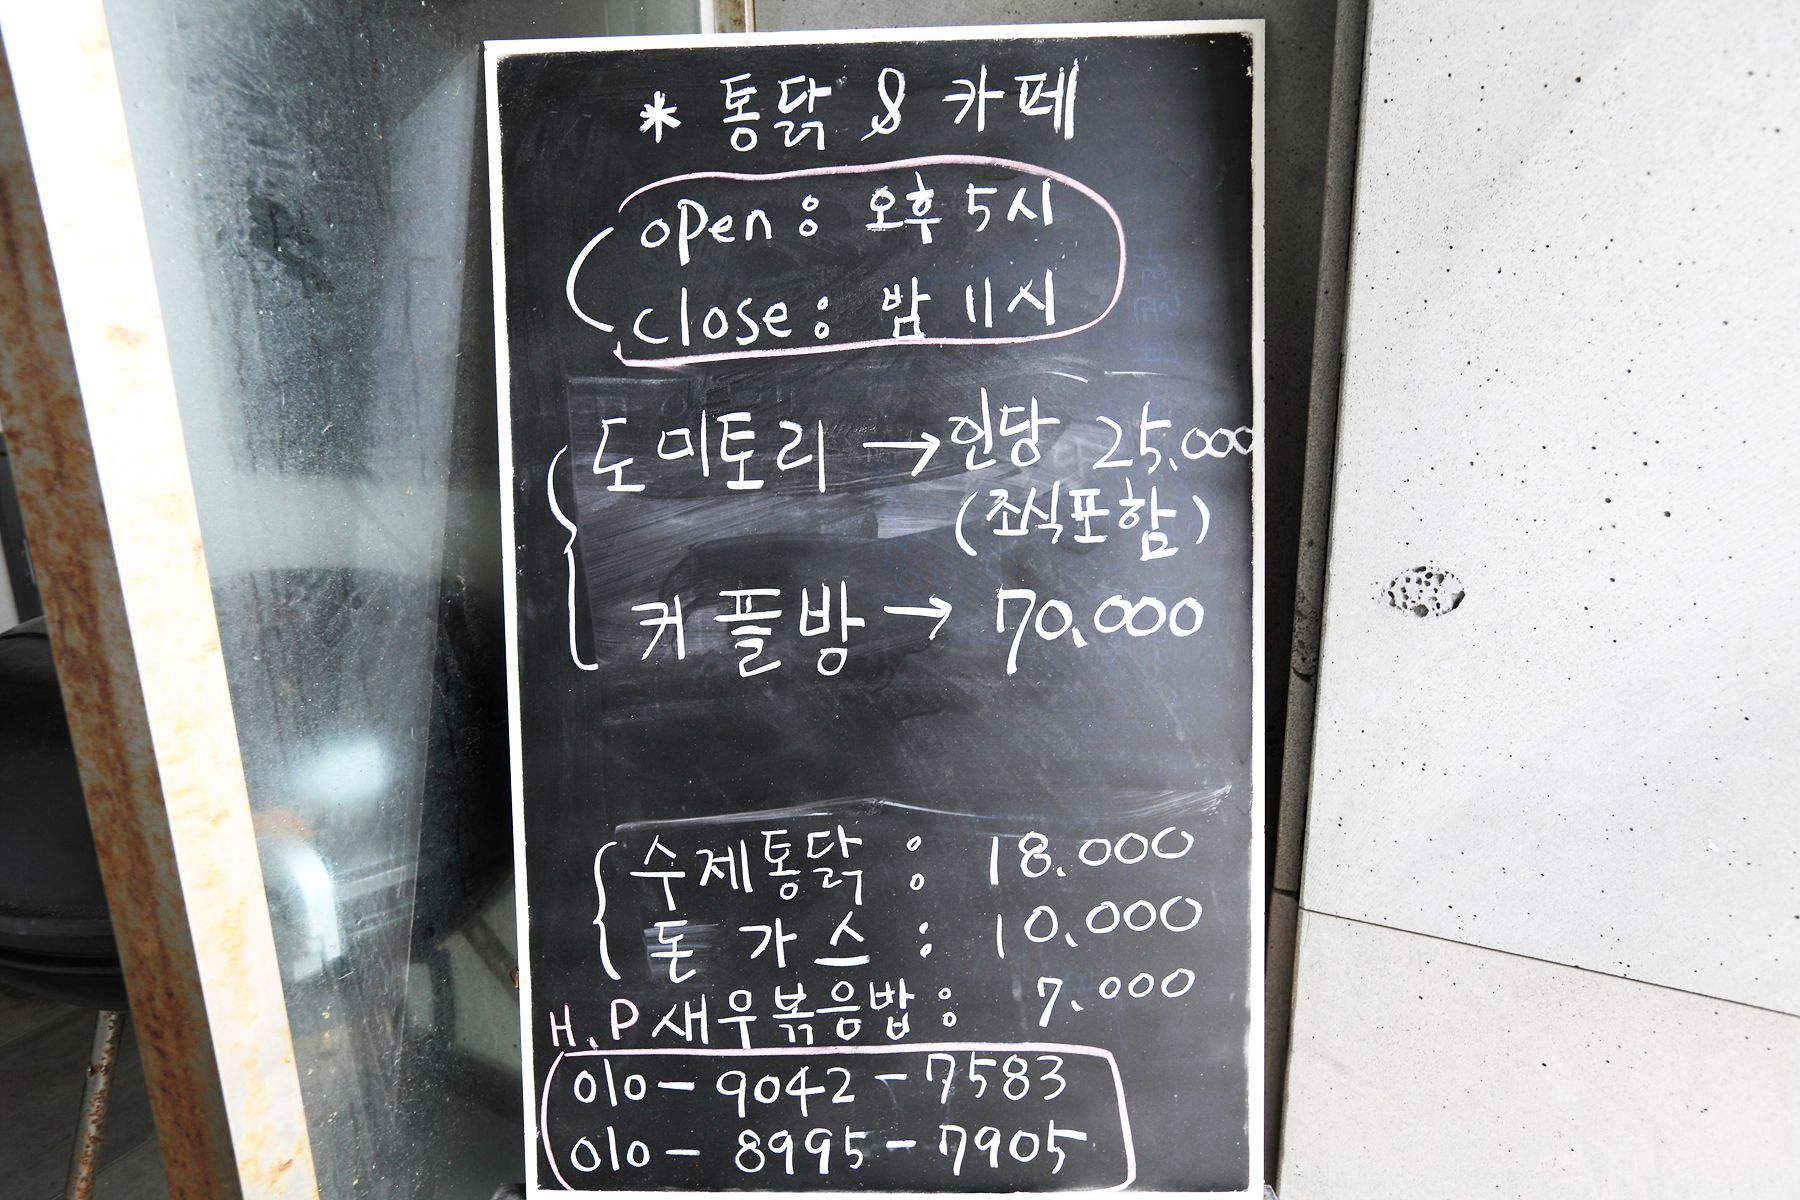 * 통닭 & 카페
open : 오후 5시
close : 밤 11시
도미토리 → 인당 25,000
(조식포함)
커플방 → 70,000
수제통닭 : 18.000
돈가스 : 10,000
새우볶음밥 : 7.000
H.P
010-9042-7583
010-8995-7905